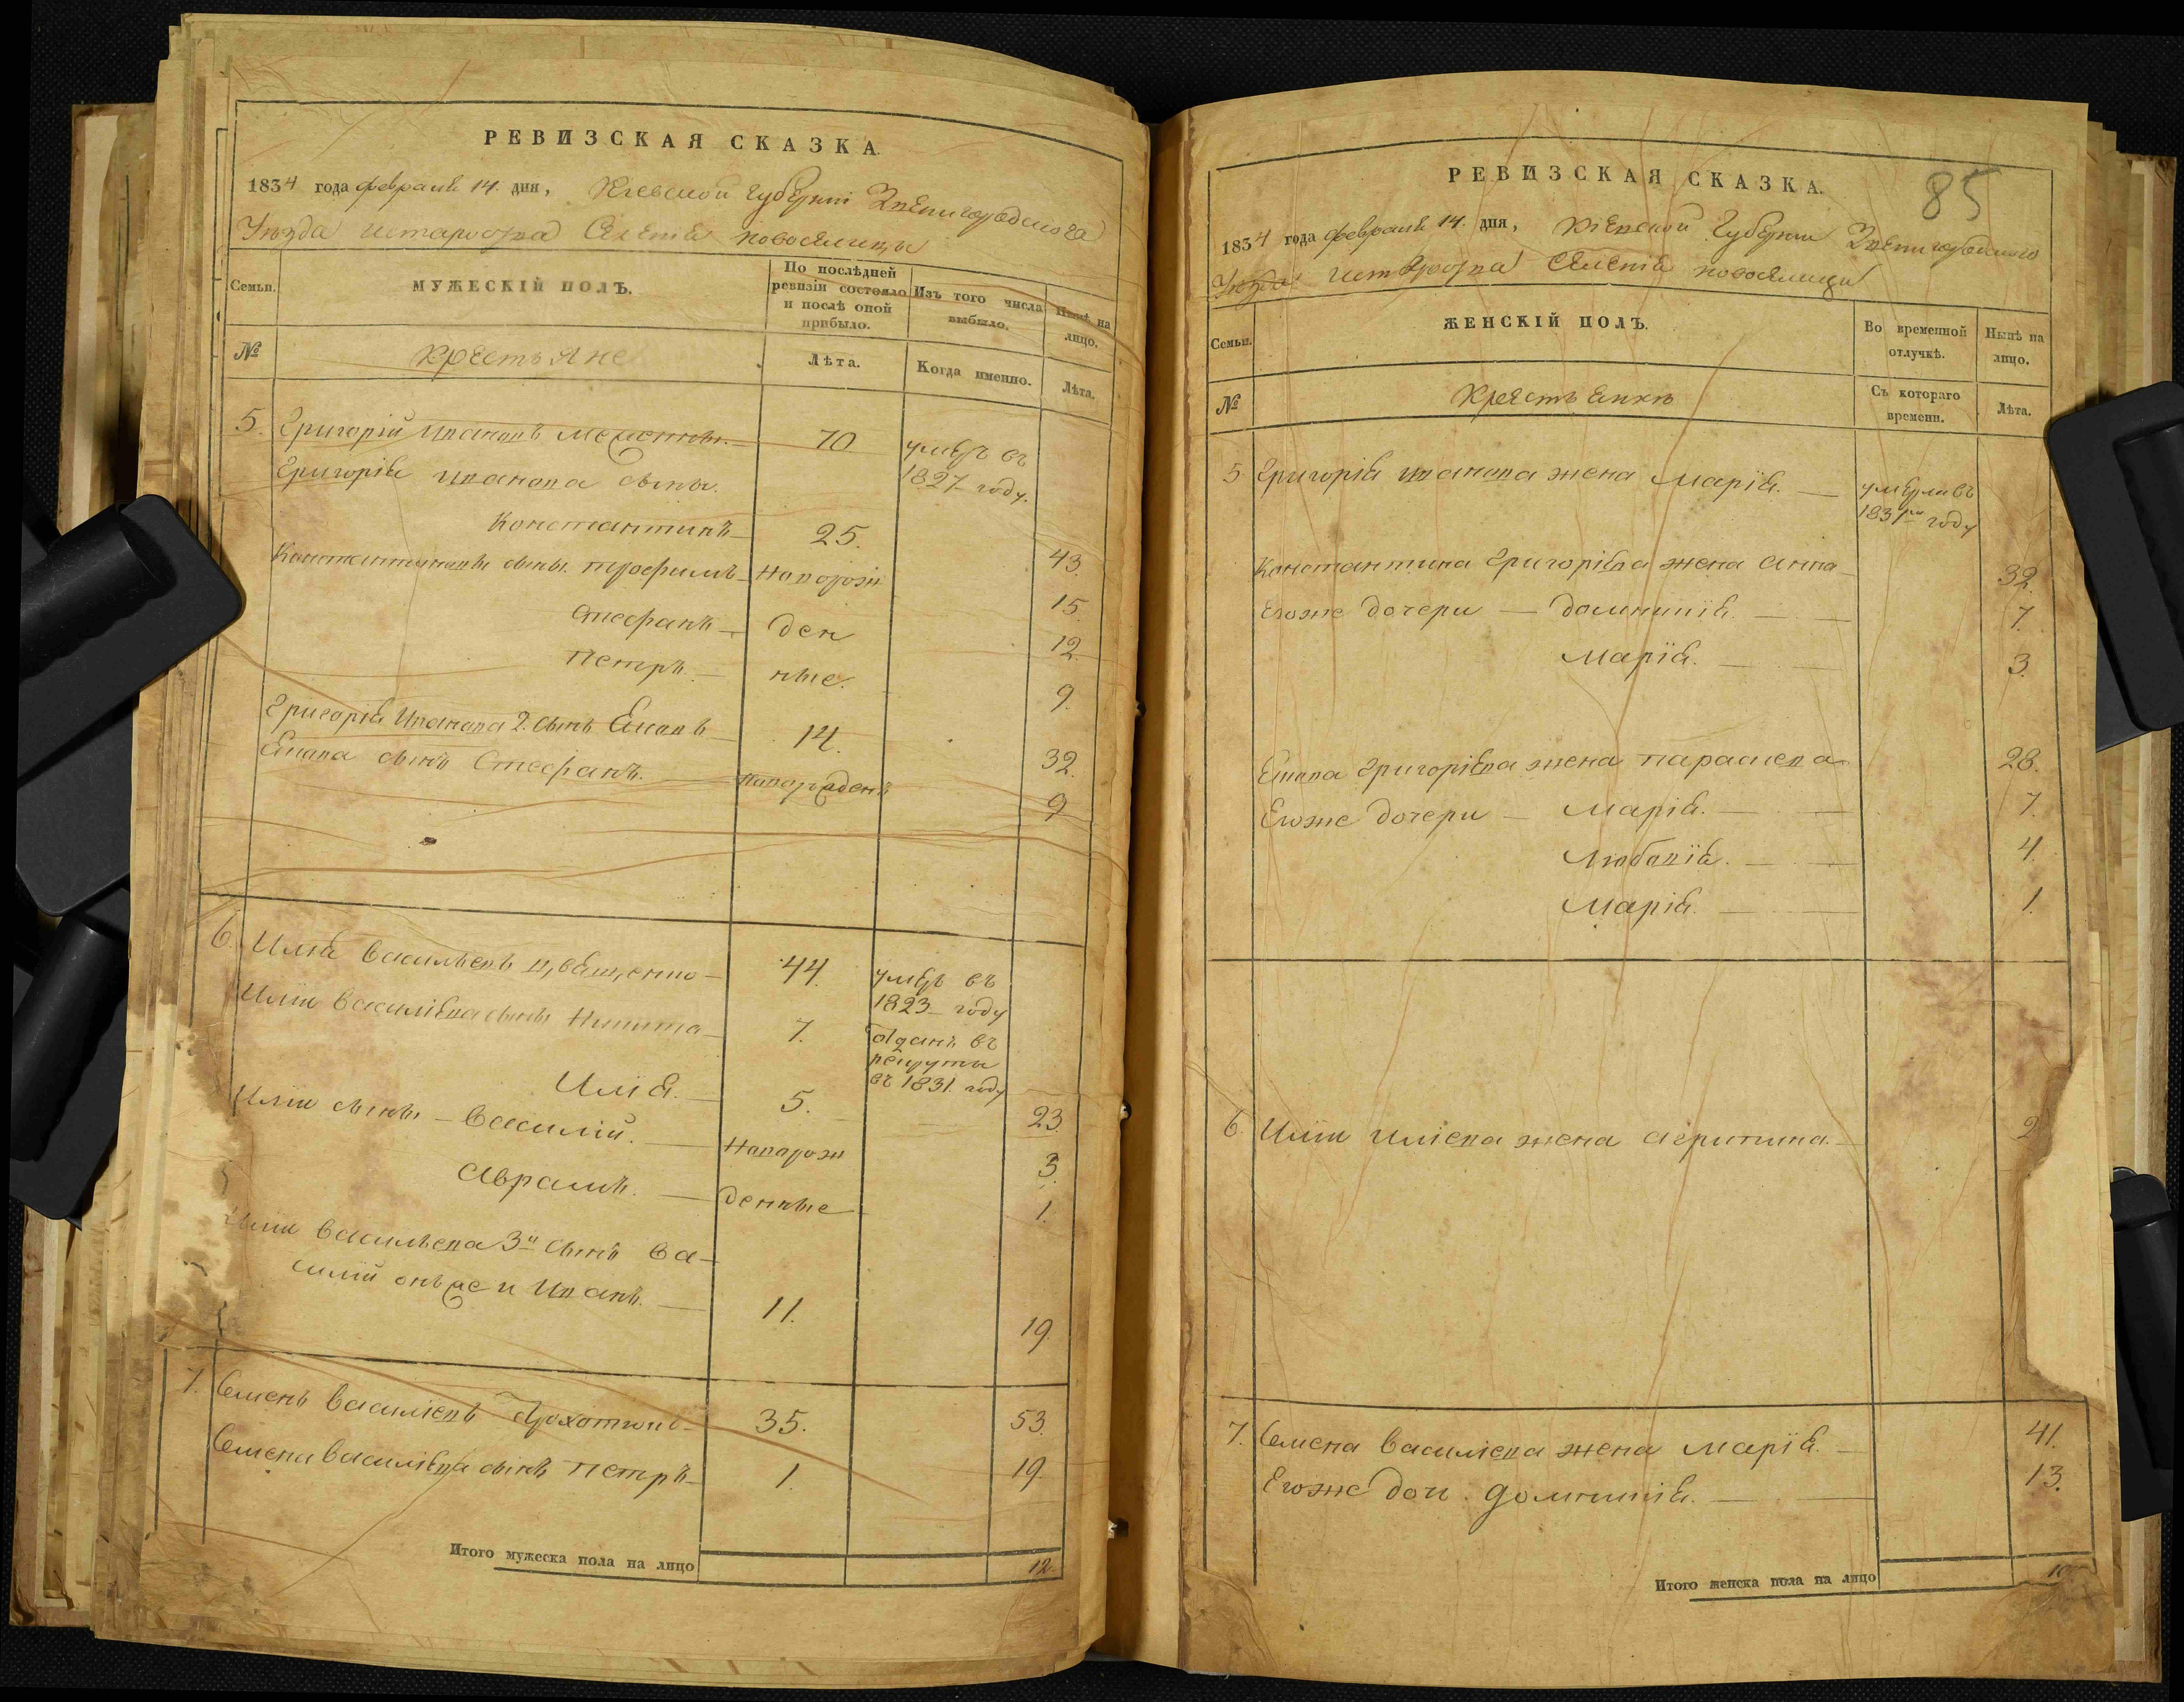 РЕВИЗСКАЯ СКАЗКА.
1834 года февраля 14. дня, Киевской губерніи Звенигородскога
Уезда истароства Селенія новоселицы
Семьи. МУЖЕСКІЙ ПОЛЪ. По послѣдней ревизіи состояло и послѣ оной прибыло. Изъ того числа выбыло. Нынѣ на лицо.
№ крестьяне Лѣта. Когда именно. Лѣта.
5. Григорій Ивановъ 70 умеръ въ
Григорія Иванова сыны. 1827 году.
Константинъ 25. 43.
Константиновы сыны. трофимъ Новорож 15.
Стефанъ ден 12.
Петръ ные. 9.
Григорія Иванова 2. сынъ Еновъ 14. 32.
Енова сынъ Стефанъ. Новорожденъ 9
6. Илія Васильевъ 44. умеръ въ
1823 году
Иліи Василіева сыны Никита 7. отданъ въ
рекруты
въ 1831. году
Илія. 5. 23.
Иліи сыны Василій. Новорож 3.
Аврамъ. денные 1.
Иліи Васильева 3й сынъ Ва-
силій онъже и Иванъ. 11. 19.
7. Семенъ Василіевъ 35. 53.
Семена Василіева сынъ Петръ 1. 19.
Итого мужеска пола на лицо 12.
85
РЕВИЗСКАЯ СКАЗКА.
1834 года февраля 14. дня, Кіевской Губерніи Звенигородского
Уезда истароства Селенія новоселицы
Семьи. ЖЕНСКІЙ ПОЛЪ. Во временной отлучкѣ. Нынѣ на лицо.
№ Крестьянки Съ котораго времени. Лѣта.
5 Григорія иванова жена Марія. умерла въ
1831м году
Константина Григоріева жена анна 32.
Егоже дочери — домникія. 7.
Марія. 3.
Енова Григоріева жена параскева 28.
Егоже дочери — Марія. 7.
Любовія. 4.
Марія. 1.
6. Иліи иліева жена агрипина. 2
7. Семена василіева жена Марія. 41.
Егоже доч. домникія. 13.
Итого женска пола на лицо